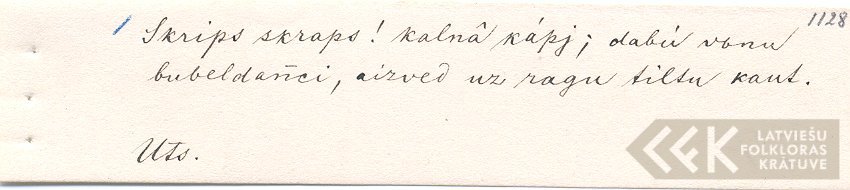 1128
1 Skrips skraps! kalnâ kápj; dabú vonu
bubeldañci, aizved uz ragu tiltu kaut.
Uts.
LATVIEŠU
FOLKLORAS
KRĀTUVE